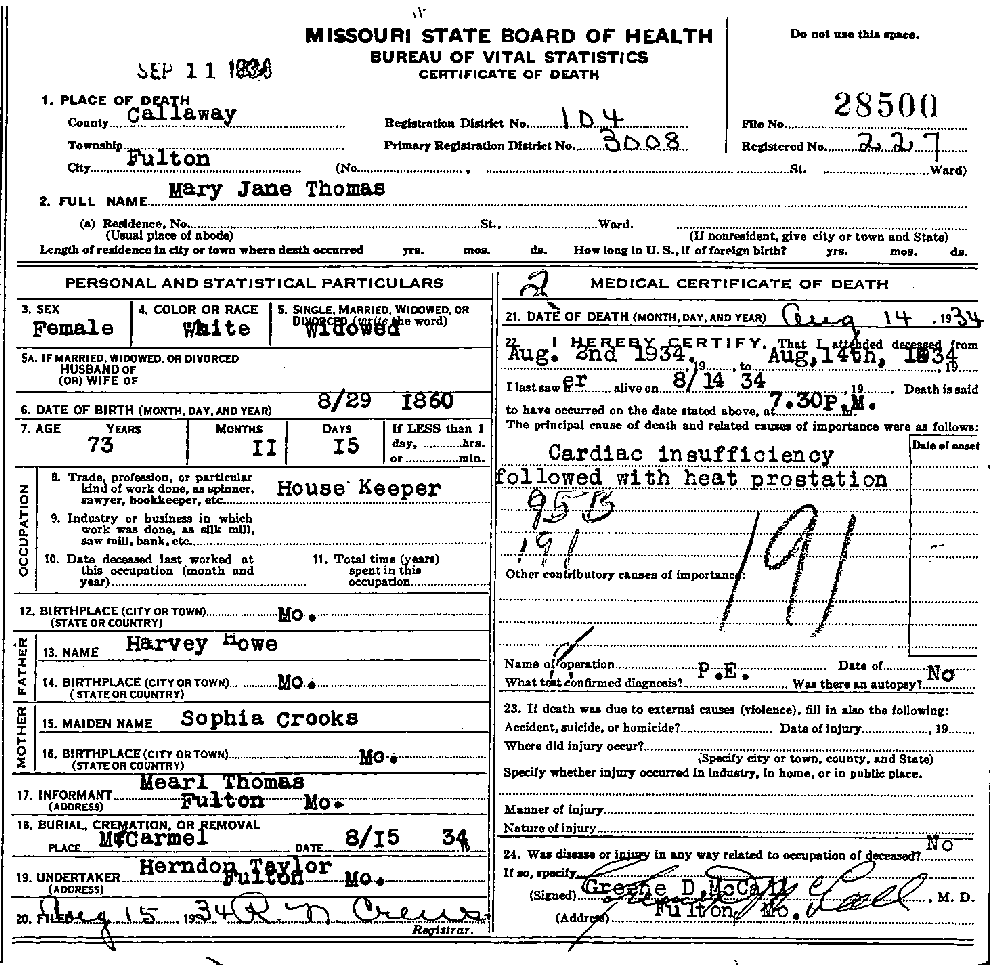 MISSOURI STATE BOARD OF HEALTH
BUREAU OF VITAL STATISTICS
CERTIFICATE OF DEATH
Do not use this space.
SEP 11 1934
28500
1. PLACE OF DEATH
County Callaway
Registration District No. 104
File No.
Township
Primary Registration District No. 3008
Registered No. 227
City Fulton (No. , St. Ward)
2. FULL NAME Mary Jane Thomas
(a) Residence, No. St., Ward.
(Usual place of abode) (If nonresident, give city or town and State)
Length of residence in city or town where death occurred yrs. mos. ds. How long in U. S., if of foreign birth? yrs. mos. ds.
PERSONAL AND STATISTICAL PARTICULARS
3. SEX 4. COLOR OR RACE 5. SINGLE, MARRIED, WIDOWED, OR
DIVORCED (write the word)
Female White Widowed
5A. IF MARRIED, WIDOWED, OR DIVORCED
HUSBAND OF
(OR) WIFE OF
6. DATE OF BIRTH (MONTH, DAY, AND YEAR) 8/29 1860
7. AGE YEARS MONTHS DAYS If LESS than 1
day, hrs.
or min.
73 II I5
OCCUPATION
8. Trade, profession, or particular
kind of work done, as spinner,
sawyer, bookkeeper, etc. House Keeper
9. Industry or business in which
work was done, as silk mill,
saw mill, bank, etc.
10. Date deceased last worked at
this occupation (month and
year)
11. Total time (years)
spent in this
occupation
12. BIRTHPLACE (CITY OR TOWN) Mo.
(STATE OR COUNTRY)
FATHER
13. NAME Harvey Howe
14. BIRTHPLACE (CITY OR TOWN) Mo.
(STATE OR COUNTRY)
MOTHER
15. MAIDEN NAME Sophia Crooks
16. BIRTHPLACE (CITY OR TOWN) Mo.
(STATE OR COUNTRY)
Mearl Thomas
17. INFORMANT Fulton Mo.
(ADDRESS)
18. BURIAL, CREMATION, OR REMOVAL
PLACE McCarmel DATE 8/I5 34
Herndon Taylor
19. UNDERTAKER Fulton Mo.
(ADDRESS)
20. FILED Aug 15 1934 R N Crews
Registrar.
2 MEDICAL CERTIFICATE OF DEATH
21. DATE OF DEATH (MONTH, DAY, AND YEAR) Aug 14 , 1934
22. I HEREBY CERTIFY, That I attended deceased from
Aug. 2nd 1934. 19 to Aug,14th, 1934 19
I last saw er alive on 8/14 34 19 Death is said
to have occurred on the date stated above, at 7.30P.M.
The principal cause of death and related causes of importance were as follows:
Date of onset
Cardiac insufficiency
followed with heat prostation
95B
191
191
Other contributory causes of importance:
Name of operation Date of
What test confirmed diagnosis? P.E. Was there an autopsy? No
23. If death was due to external causes (violence), fill in also the following:
Accident, suicide, or homicide? Date of injury , 19
Where did injury occur?
(Specify city or town, county, and State)
Specify whether injury occurred in industry, in home, or in public place.
Manner of injury
Nature of injury
24. Was disease or injury in any way related to occupation of deceased? No
If so, specify
(Signed) Greene D.McCall , M. D.
(Address) Fulton, Mo.